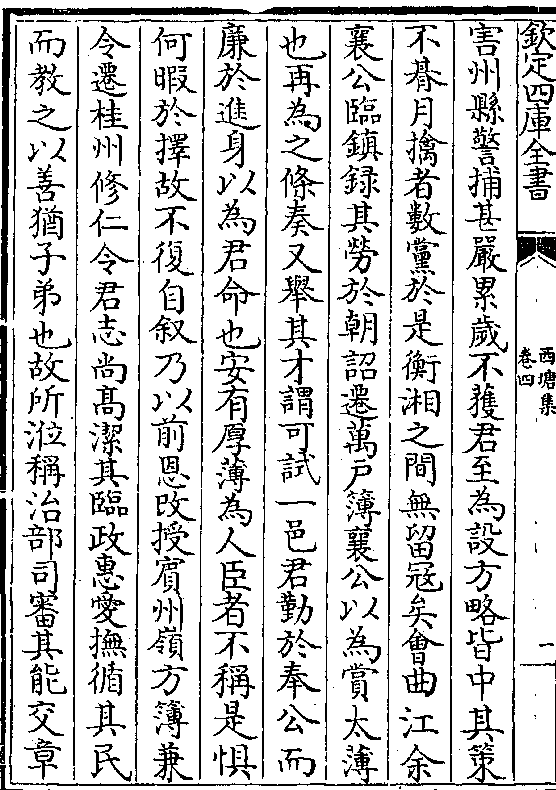 欽定四庫全書
西塘集
卷四
一
害州縣警捕甚嚴累歲不獲君至為設方略皆中其策
不朞月擒者數黨於是衡湘之間無留冦矣會曲江余
襄公臨鎮録其勞於朝詔遷萬戸簿襄公以為賞太薄
也再為之條奏又舉其才謂可試一邑君勤於奉公而
廉於進身以為君命也安有厚薄為人臣者不稱是惧
何暇於擇故不復自叙乃以前恩改授賔州嶺方簿兼
令遷桂州修仁令君志尚髙潔其臨政惠愛撫循其民
而教之以善猶子弟也故所涖稱治部司審其能交章